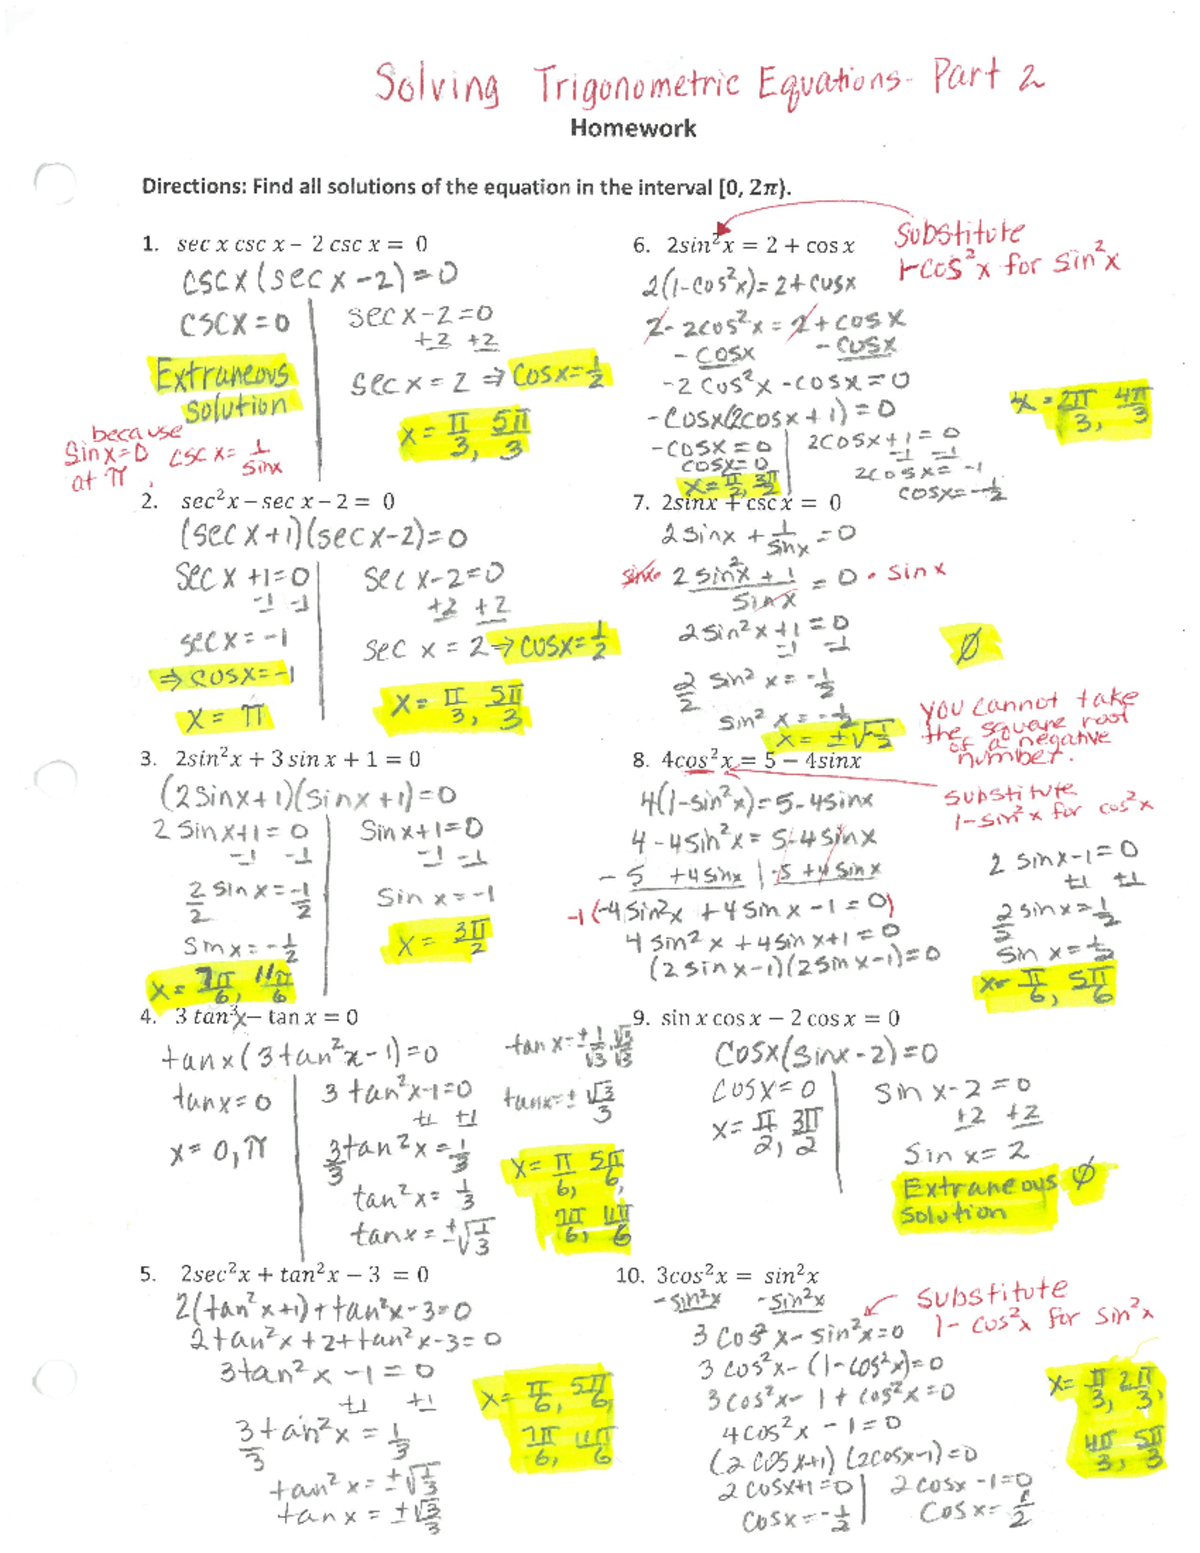 Solving Trigonometric Equations - Part 2
Homework
Directions: Find all solutions of the equation in the interval [0, 2π).
1. sec x csc x − 2 csc x = 0
csc x (sec x − 2) = 0
csc x = 0
Extraneous solution
because sin x = 0 at π, csc x = 1/sin x
sec x − 2 = 0
+2 +2
sec x = 2 ⇒ cos x = 1/2
x = π/3, 5π/3
2. sec²x − sec x − 2 = 0
(sec x + 1)(sec x − 2) = 0
sec x + 1 = 0
−1 −1
sec x = −1
⇒ cos x = −1
x = π
sec x − 2 = 0
+2 +2
sec x = 2 ⇒ cos x = 1/2
x = π/3, 5π/3
3. 2sin²x + 3 sin x + 1 = 0
(2 sin x + 1)(sin x + 1) = 0
2 sin x + 1 = 0
−1 −1
2 sin x/2 = −1/2
sin x = −1/2
x = 7π/6, 11π/6
sin x + 1 = 0
−1 −1
sin x = −1
x = 3π/2
4. 3 tan³x − tan x = 0
tan x (3 tan²x − 1) = 0
tan x = 0
x = 0, π
3 tan²x − 1 = 0
+1 +1
3 tan²x/3 = 1/3
tan²x = 1/3
tan x = ±√(1/3)
tan x = ± 1/√3 · √3/√3
tan x = ± √3/3
x = π/6, 5π/6,
7π/6, 11π/6
5. 2sec²x + tan²x − 3 = 0
2(tan²x + 1) + tan²x − 3 = 0
2tan²x + 2 + tan²x − 3 = 0
3tan²x − 1 = 0
+1 +1
3tan²x/3 = 1/3
tan²x = ±√(1/3)
tan x = ±√3/3
x = π/6, 5π/6,
7π/6, 11π/6
6. 2sin²x = 2 + cos x
Substitute
1 − cos²x for sin²x
2(1 − cos²x) = 2 + cos x
2 − 2cos²x = 2 + cos x
− cos x − cos x
−2 cos²x − cos x = 0
−cos x(2cos x + 1) = 0
−cos x = 0
cos x = 0
x = π/2, 3π/2
2cos x + 1 = 0
−1 −1
2cos x = −1
cos x = −1/2
x = 2π/3, 4π/3
7. 2sinx + csc x = 0
2 sin x + 1/sin x = 0
sin x · 2 sin²x + 1/sin x = 0 · sin x
2 sin²x + 1 = 0
−1 −1
2/2 sin²x = −1/2
sin²x = −1/2
x = ±√−1/3
∅
you cannot take
the square root
of a negative
number.
8. 4cos²x = 5 − 4sinx
substitute
1 − sin²x for cos²x
4(1 − sin²x) = 5 − 4sin x
4 − 4sin²x = 5 − 4 sin x
− 5 + 4 sin x | −5 + 4 sin x
−1(−4 sin²x + 4 sin x − 1 = 0)
4 sin²x + 4 sin x + 1 = 0
(2 sin x − 1)(2 sin x − 1) = 0
2 sin x − 1 = 0
+1 +1
2 sin x/2 = 1/2
sin x = 1/2
x = π/6, 5π/6
9. sin x cos x − 2 cos x = 0
cos x(sin x − 2) = 0
cos x = 0
x = π/2, 3π/2
sin x − 2 = 0
+2 +2
sin x = 2
Extraneous ∅
solution
10. 3cos²x = sin²x
−sin²x −sin²x
substitute
1 − cos²x for sin²x
3 cos²x − sin²x = 0
3 cos²x − (1 − cos²x) = 0
3 cos²x − 1 + cos²x = 0
4 cos²x − 1 = 0
(2 cos x + 1)(2cos x − 1) = 0
2 cos x + 1 = 0
cos x = −1/2
2 cos x − 1 = 0
cos x = 1/2
x = π/3, 2π/3,
4π/3, 5π/3